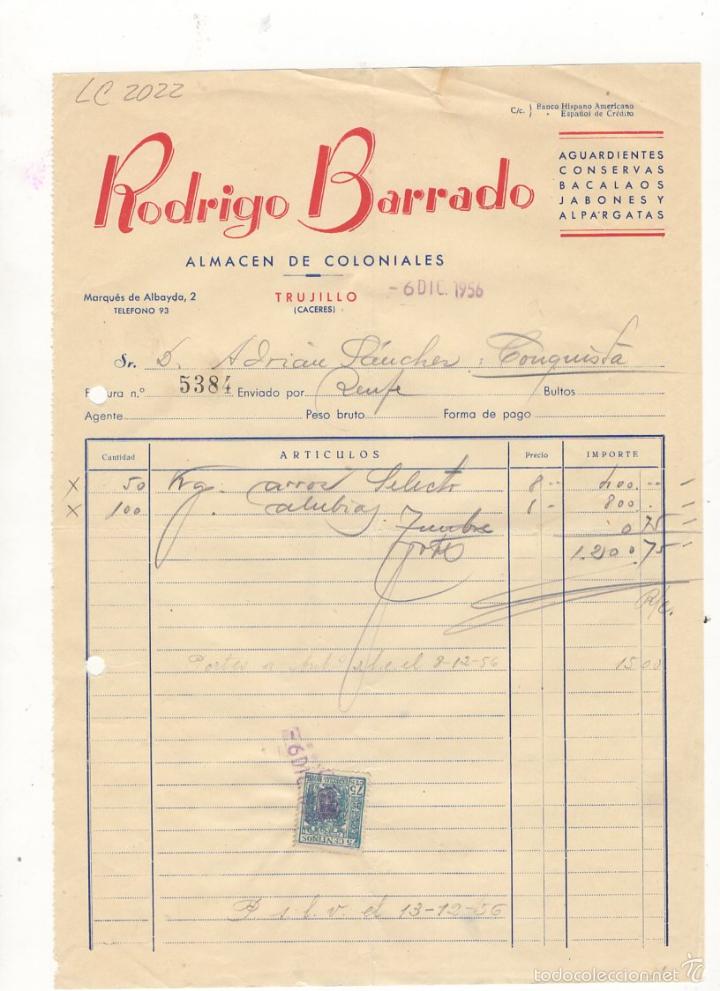 LC 2022
C/c. } Banco Hispano Americano
Español de Crédito
Rodrigo Barrado
AGUARDIENTES
CONSERVAS
BACALAOS
JABONES Y
ALPARGATAS
ALMACEN DE COLONIALES
Marqués de Albayda, 2
TELEFONO 93
TRUJILLO
(CACERES)
-6 DIC. 1956
Sr. D. Adrián Sánchez : Conquista
F ura n.º 5384 Enviado por Renfe Bultos
Agente Peso bruto Forma de pago
Cantidad ARTICULOS Precio IMPORTE
x 50 Kg. arroz Selecto 8 -- 400.--
x 100 alubias 800.
Timbre 0 75
1.200 75
Portes a el 8-12-56 15 00
-6 DIC
75
75 CENTIMOS
P s l v el 13-12-56
todocoleccion.net